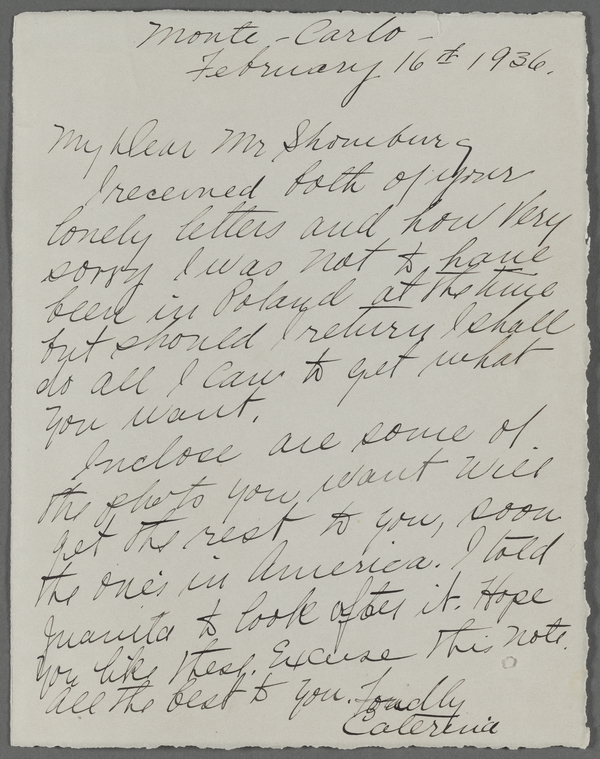 Monte-Carlo-
February 16th 1936.
My Dear Mr Shomburg
I received both of your
lovely letters and how very
sorry I was not to have
been in Poland at the time
but should I return I shall
do all I can to get what
you want.
Inclose are some of
the photos you want will
get the rest to you, soon
the one's in America. I told
Juanita to look after it. Hope
you like these. Excuse this note.
all the best to you. Fondly
Caterina